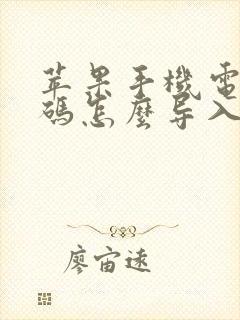 苹果手機電
碼怎麼导入
廖宙遠